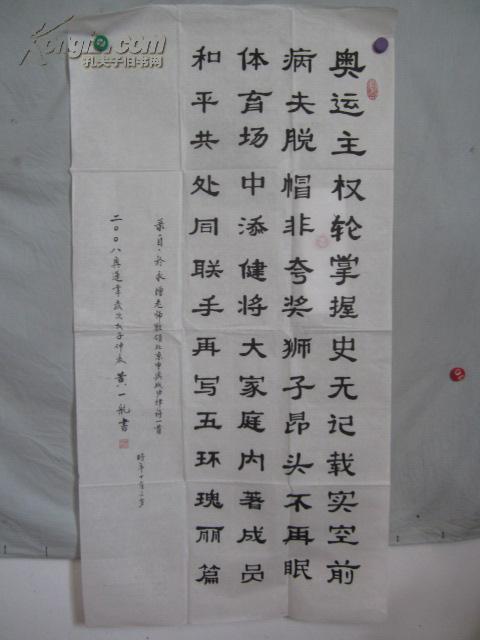 奥运主权轮掌握史无记载实空前
病夫脱帽非夸奖狮子昂头不再眠
体育场中添健将大家庭内著成员
和平共处同联手再写五环瑰丽篇
老师 北京申奥成功 诗一首
二〇〇八奥运 黄一航書
Kongfz.com
孔夫子旧书网